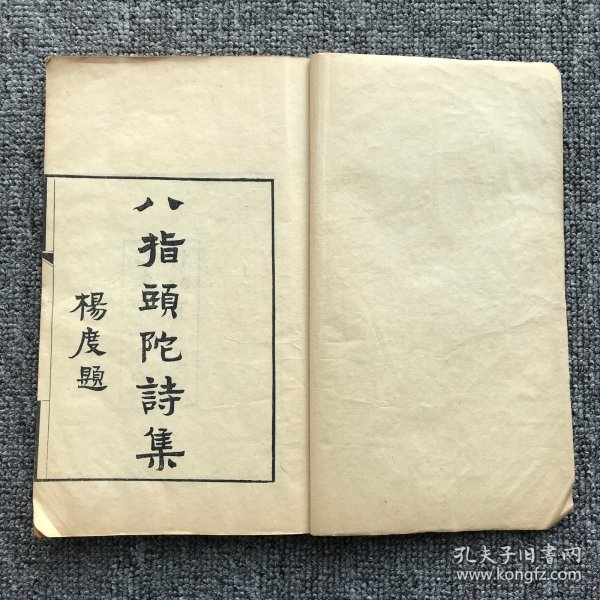 八指頭陀詩集
楊度題
孔夫子旧書网
www.kongfz.com